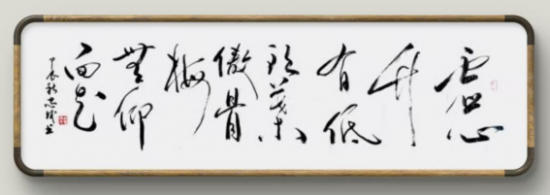 虚心
竹
有低
頭葉
傲骨
梅
無仰
面花